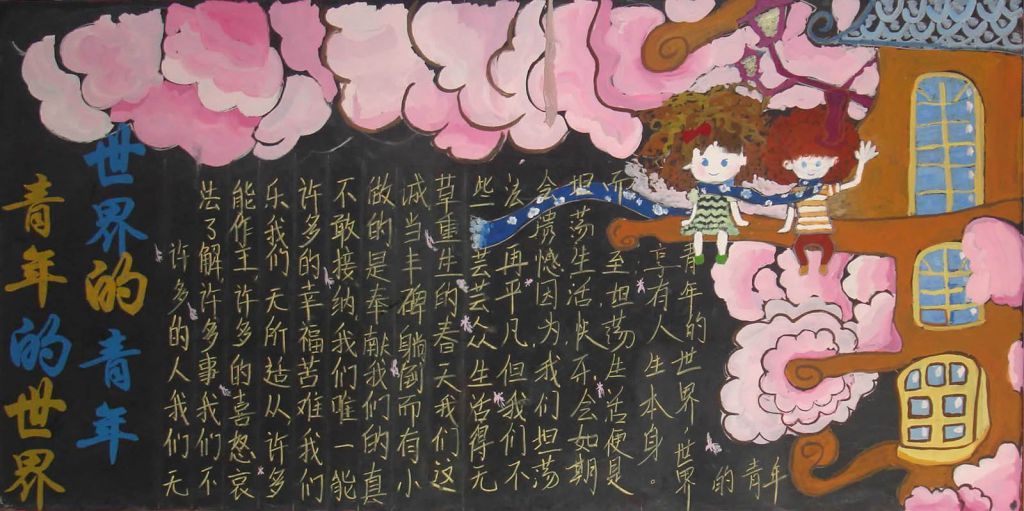 青年的世界
世界的青年
许多的人我们无
法了解许多事我们不
能作主,许多的喜怒哀
乐我们无所适从许多
许多的幸福苦难我们
不敢接纳我们唯一能
做的是奉献我们的真
诚当丰碑躺倒而有小
草重生的春天我们这
些芸芸众生活得无
法再平凡,但我们不
会遗憾因为我们坦荡
坦荡生活快乐会如期
而至,坦荡生活便是
享有人生本身。
青年的世界世界
的青年